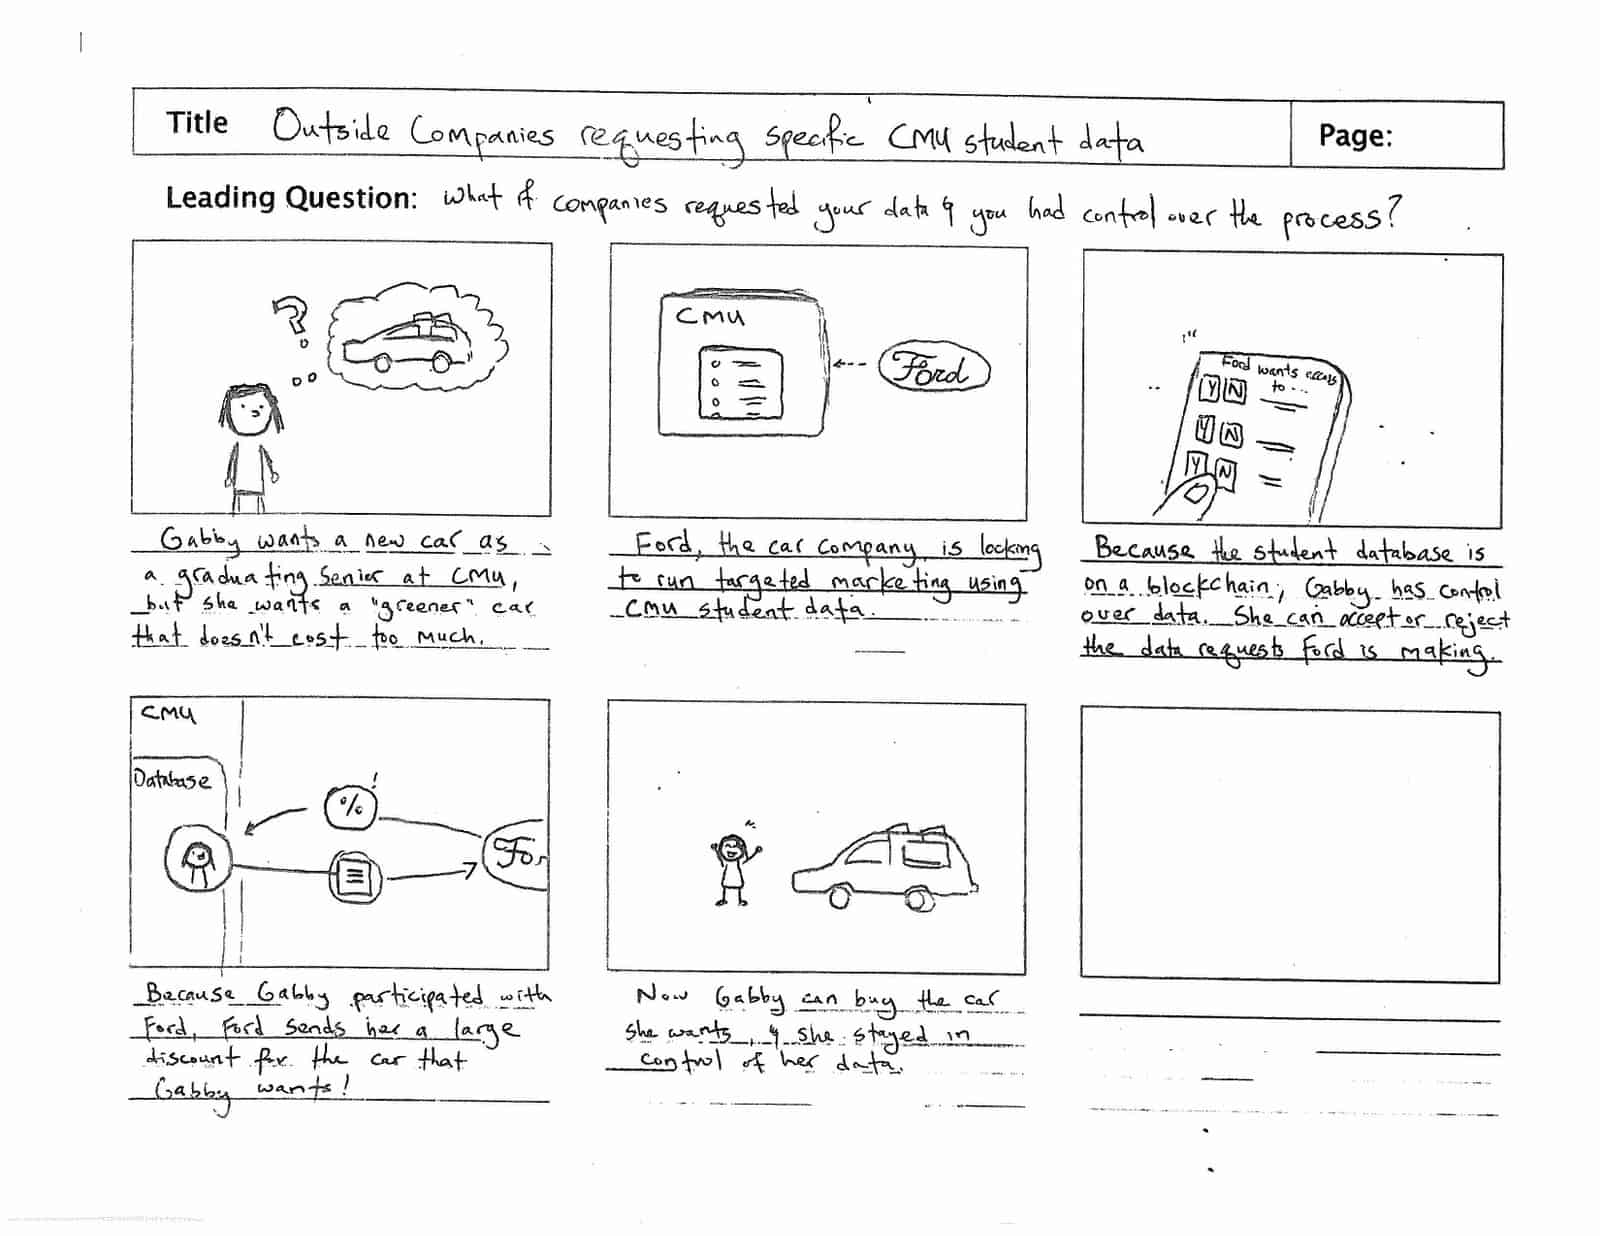 Title Outside Companies requesting specific CMU student data
Page:
Leading Question: What if companies requested your data & you had control over the process?
?
Gabby wants a new car as
a graduating Senior at CMU,
but she wants a "greener" car
that doesn't cost too much.
CMU
Ford
Ford, the car company, is looking
to run targeted marketing using
CMU student data.
Ford wants access
to ...
Y N
Y N
Y N
Because the student database is
on a blockchain, Gabby has control
over data. She can accept or reject
the data requests Ford is making.
CMU
Database
%
!
For
Because Gabby participated with
Ford, Ford sends her a large
discount for the car that
Gabby wants!
Now Gabby can buy the car
she wants, & she stayed in
control of her data.